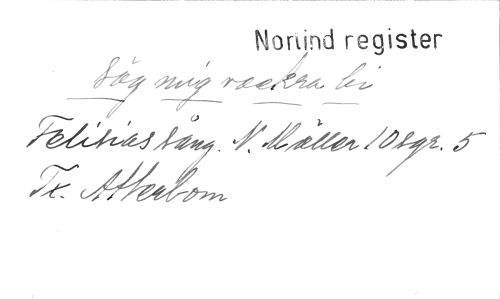 Norlind register
Säg mig vackra bi
Felisias sång. N. Möller 10 sgr. 5
Tx. Atterbom